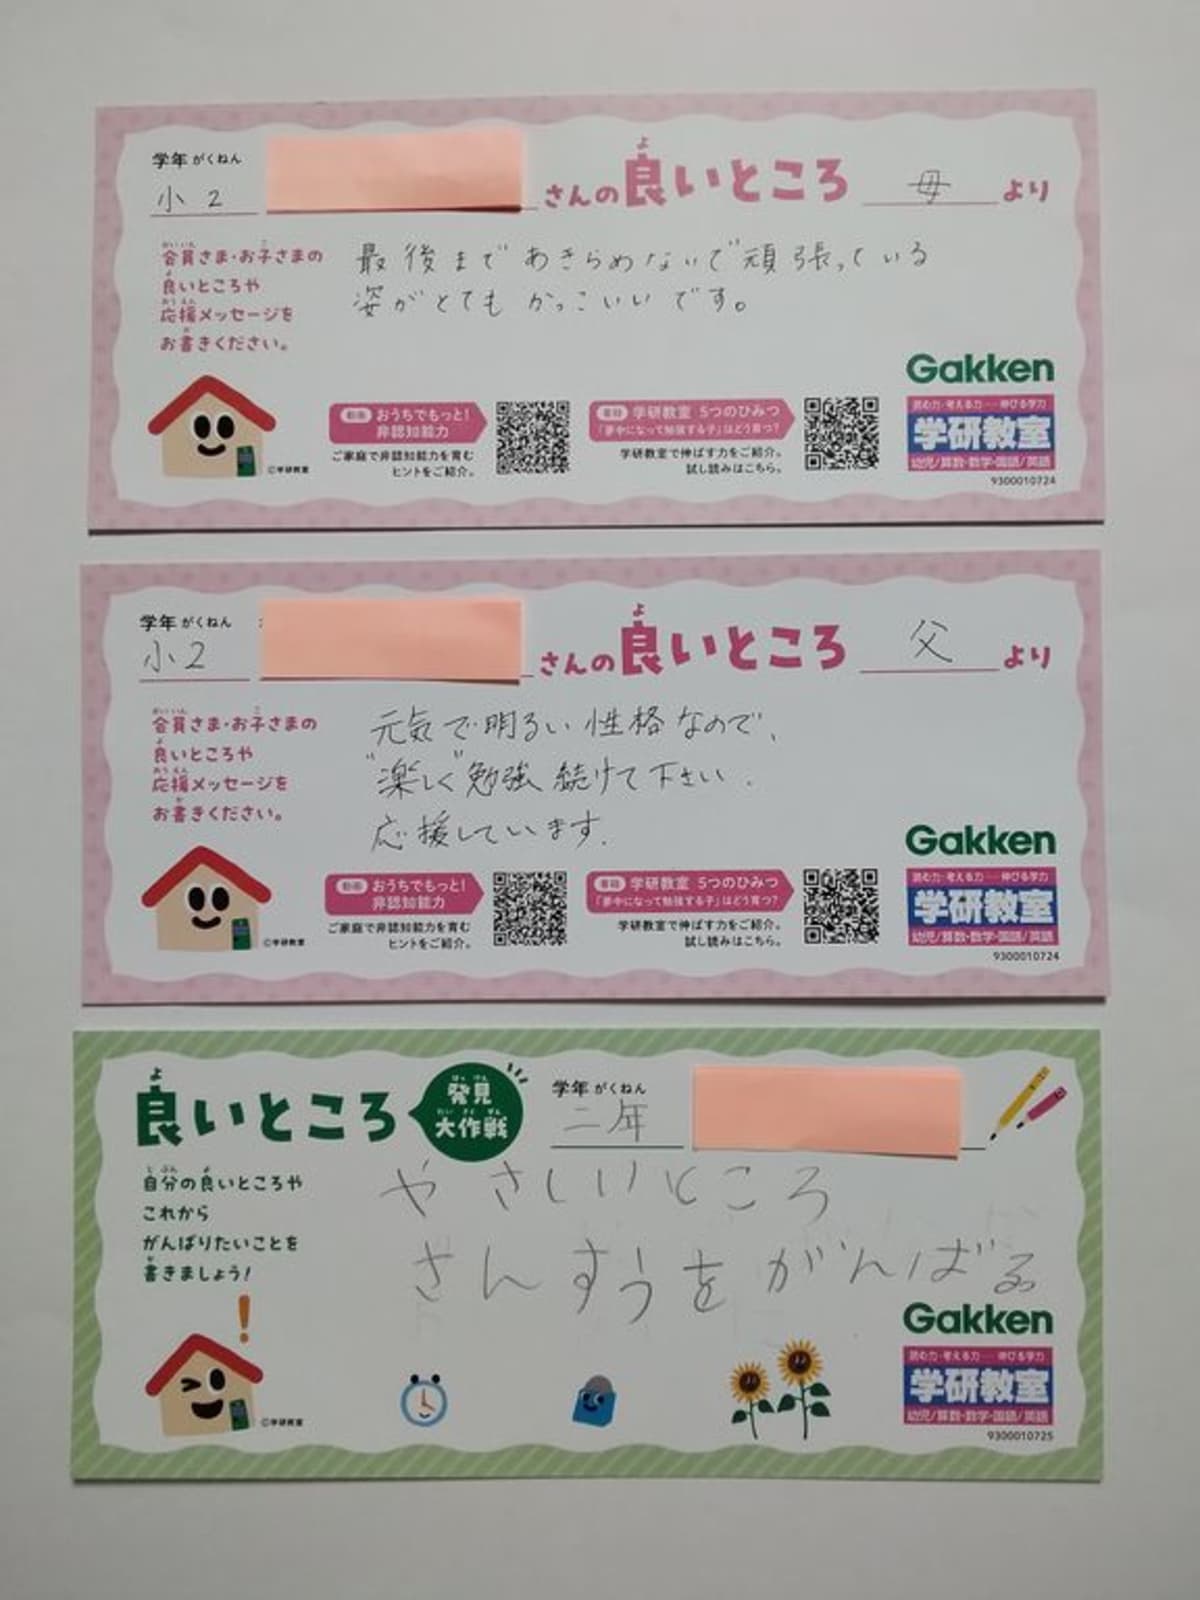 学年 がくねん
小2
さんの良いところ
よ
母 より
会員さま・お子さまの
かいいん こ
良いところや
よ
応援メッセージを
おうえん
お書きください。
か
最後まであきらめないで頑張っている
姿がとてもかっこいいです。
Gakken
読む力・考える力…伸びる学力
学研教室
幼児/算数・数学・国語/英語
9300010724
©学研教室
動画 おうちでもっと!
非認知能力
ご家庭で非認知能力を育む
ヒントをご紹介。
書籍 学研教室 5つのひみつ
「夢中になって勉強する子」はどう育つ?
学研教室で伸ばす力をご紹介。
試し読みはこちら。
学年 がくねん
小2
さんの良いところ
よ
父 より
会員さま・お子さまの
かいいん こ
良いところや
よ
応援メッセージを
おうえん
お書きください。
か
元気で明るい性格なので、
"楽しく"勉強続けて下さい.
応援しています.
Gakken
読む力・考える力…伸びる学力
学研教室
幼児/算数・数学・国語/英語
9300010724
©学研教室
動画 おうちでもっと!
非認知能力
ご家庭で非認知能力を育む
ヒントをご紹介。
書籍 学研教室 5つのひみつ
「夢中になって勉強する子」はどう育つ?
学研教室で伸ばす力をご紹介。
試し読みはこちら。
良いところ
よ
発見
はっけん
大作戦
だいさくせん
学年 がくねん
二年
自分の良いところや
じぶん よ
これから
がんばりたいことを
書きましょう!
か
やさしいところ
さんすうをがんばる
Gakken
読む力・考える力…伸びる学力
学研教室
幼児/算数・数学・国語/英語
9300010725
©学研教室